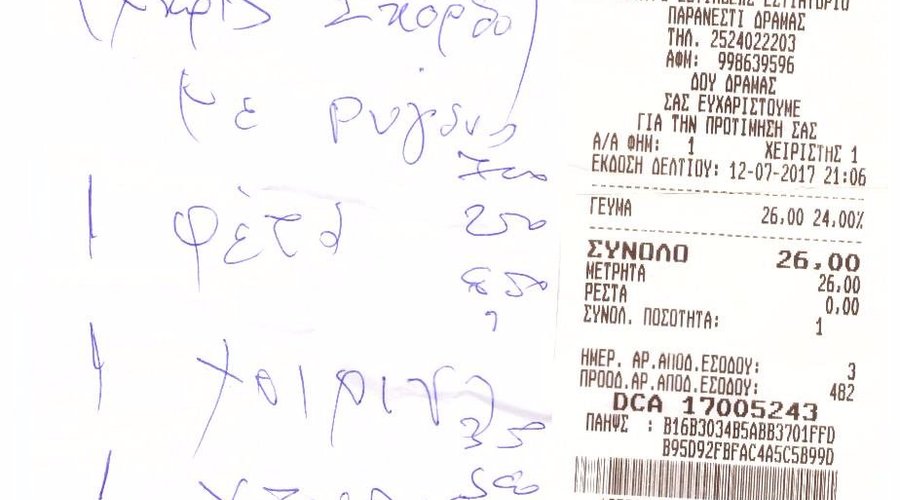 χωρίς σκόρδο)
με ρυγανι
700
1 φέτα 250
850
1 χοιρινα
35
500
ΕΣΤΙΑΤΟΡΙΟ
ΠΑΡΑΝΕΣΤΙ ΔΡΑΜΑΣ
ΤΗΛ. 2524022203
ΑΦΜ: 998639596
ΔΟΥ ΔΡΑΜΑΣ
ΣΑΣ ΕΥΧΑΡΙΣΤΟΥΜΕ
ΓΙΑ ΤΗΝ ΠΡΟΤΙΜΗΣΗ ΣΑΣ
Α/Α ΦΗΜ: 1 ΧΕΙΡΙΣΤΗΣ 1
ΕΚΔΟΣΗ ΔΕΛΤΙΟΥ: 12-07-2017 21:06
ΓΕΥΜΑ 26,00 24,00%
ΣΥΝΟΛΟ 26,00
ΜΕΤΡΗΤΑ 26,00
ΡΕΣΤΑ 0,00
ΣΥΝΟΛ. ΠΟΣΟΤΗΤΑ: 1
ΗΜΕΡ. ΑΡ.ΑΠΟΔ.ΕΣΟΔΟΥ: 3
ΠΡΟΟΔ.ΑΡ.ΑΠΟΔ.ΕΣΟΔΟΥ: 482
DCA 17005243
ΠΑΗΨΣ : B16B3034B5ABB3701FFD
B95D92FBFAC4A5C5B99D